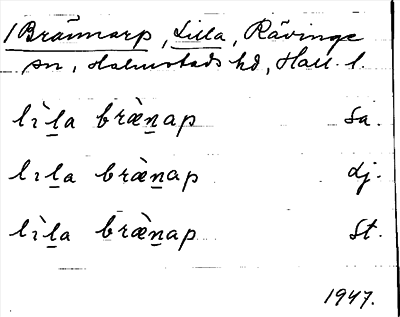 1 Brännarp, Lilla, Rävinge
sn, Halmstads hd, Hall. l.
lìl̲a bræ̀n̲ap Sa.
lıl̲a bræ̀n̲ap dj.
lìl̲a bræ̀n̲ap St.
1947.